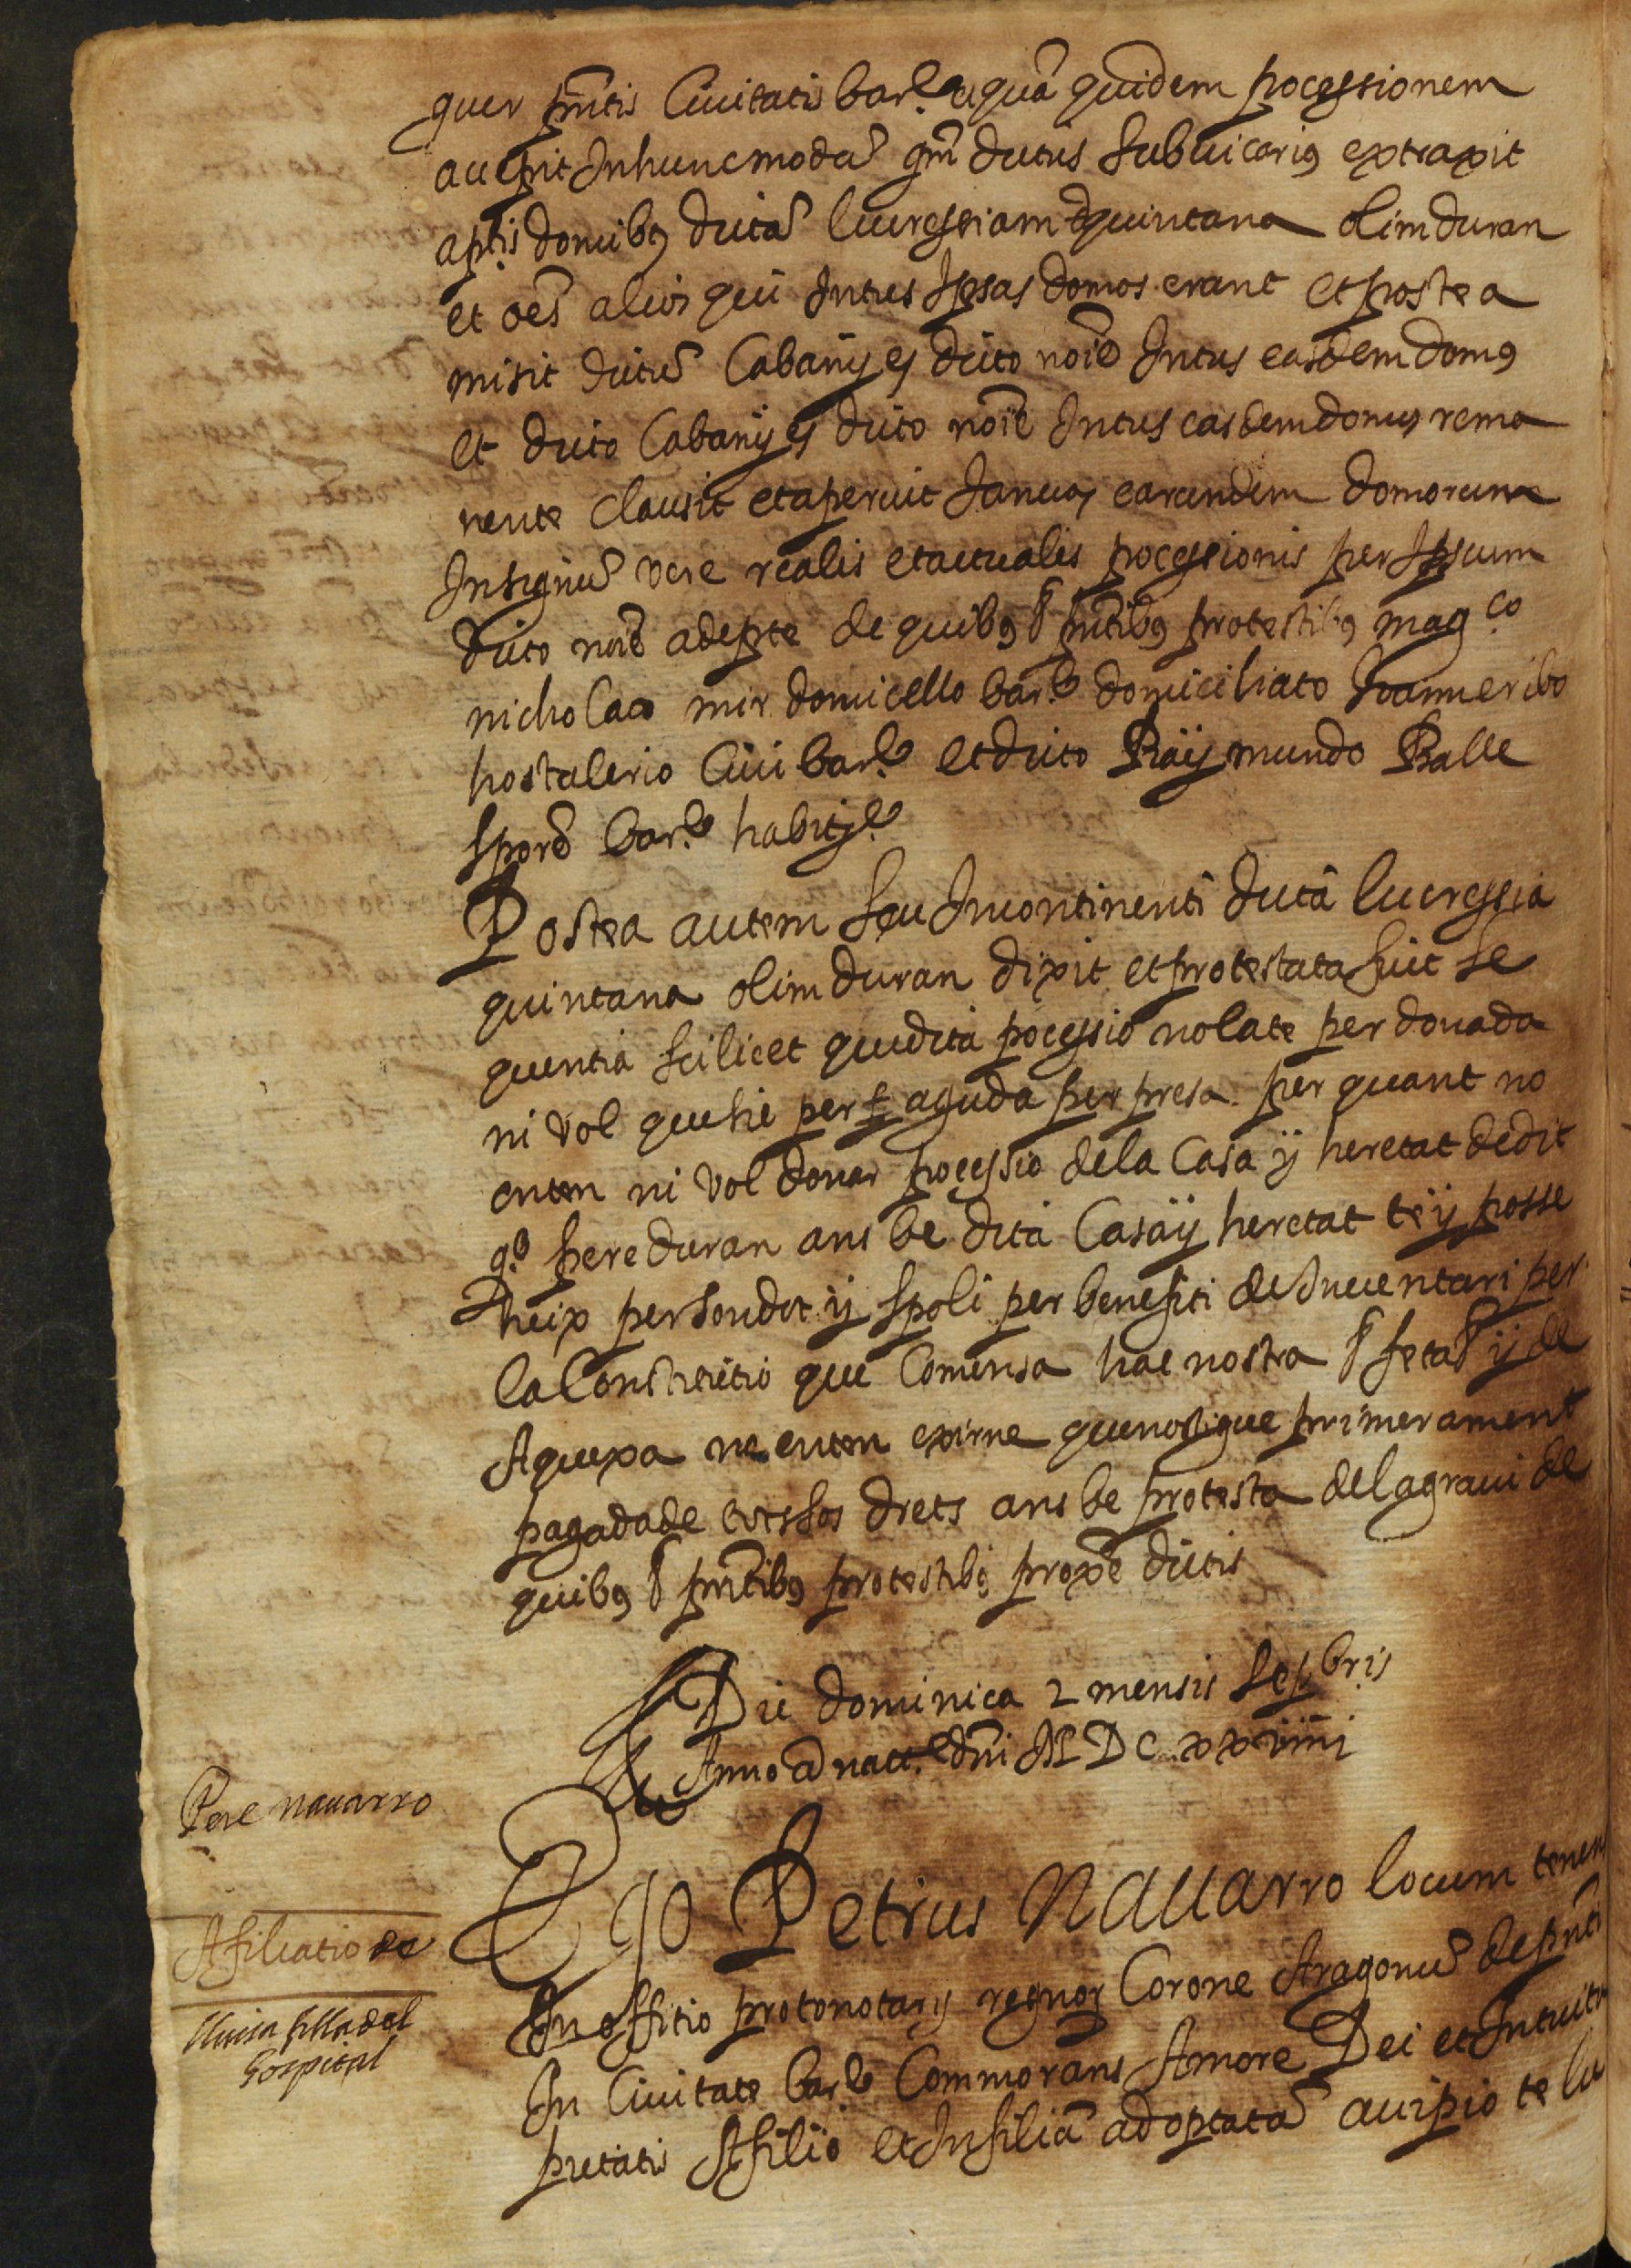 guer pntis Ciuitatis barle aquã quidem pocessionem
accepit Inhuncmodũ qm̃ dictus subuicarius extraxit
apr̃tis domibus dictã lucressiam quintana olimduran
et oẽs alios qui Intus Ipsas domos erant et postea
misit dictũ Cabanyes dicto noĩe Intus easdem domos
et dicto Cabanyes dicto noĩe Intus easdemdomus rema
nente clausit etaperuit Januas earundem domorum
Insignũ vere realis etactualis pocessionis per Ipsum
dicto noĩe adepte de quibus & pntibus protestibus magco
nicholao mir domicello barle domiciliato Joanne ribo
hostalerio Ciui barle et dicto Raymundo Balle
sporõ barle habit
Postea autem seu Incontinenti dicta lucressia
quintana olimduran dixit et protestata fuit se
quentia scilicet quedita pocessio nolate perdonada
ni vol quesie per aguda per presa per quant no
enten ni vol donar pocessio dela Casa y heretat dedit
qo pere duran ans be dita Casay heretat tey posse
heix persondot y spoli per benefiti de Inuentari per
la Constitutio que Comensa hac nostra & feta & y de
Aquexa no enten exirne quenostigue primerament
pagadade totssos drets ans be protesta delagraui de
quibus & pntibus protestibus proxẽ dictis
Die dominica 2 mensis sepbris
Anno a natte dni M D C xxviiii
Pere nauarro
Ego Petrus Nauarro locum tenens
Afiliatio de
lluisa filla del
hospital
In offitio protonotarij regnor Corone Aragonũ depnti
In Ciuitate barle Commorans Amore Dei et Intuitu
pietatis Afilio et Infiliã adoptatã accipio te lu